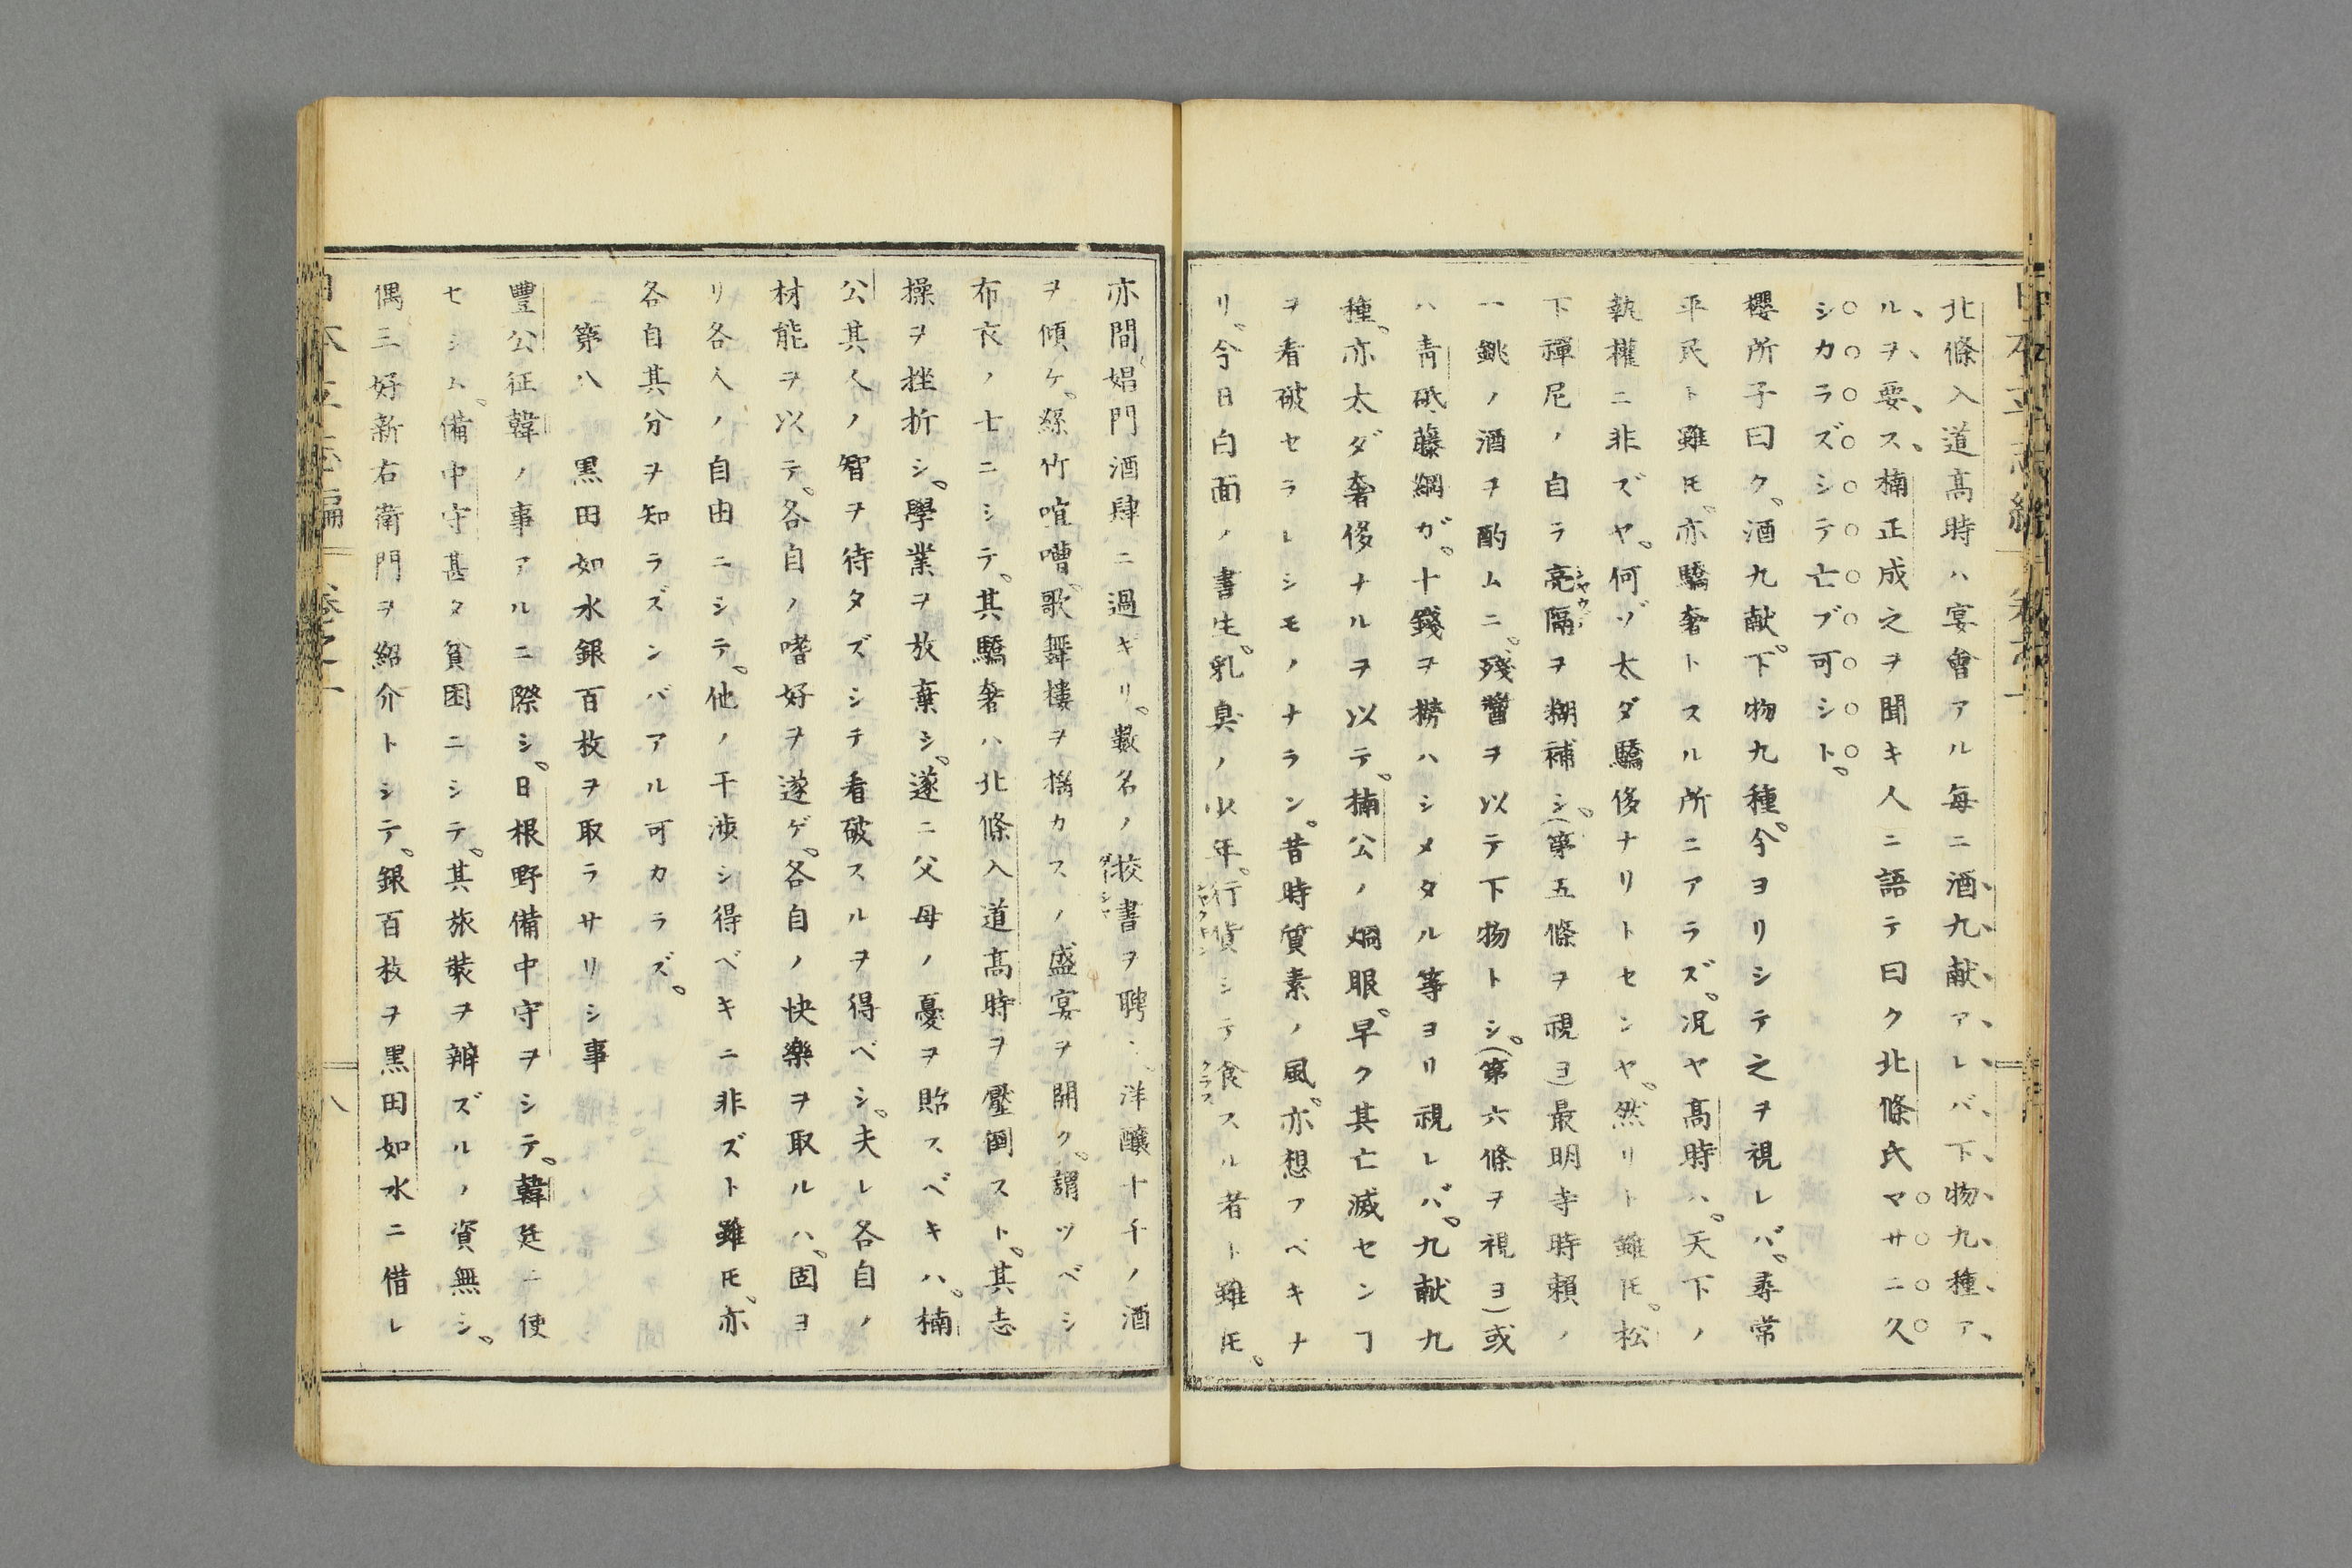 北條入道高時ハ宴會アル毎ニ酒九献アレバ下物九種ア
ルヲ要ス楠正成之ヲ聞キ人ニ語テ曰ク北條氏マサニ久
シカラズシテ亡ブ可シト。
櫻所子曰ク。酒九献。下物九種。今ヨリシテ之ヲ視レバ。尋常
平民ト雖𪜈。亦驕奢トスル所ニアラズ。况ヤ高時ハ。天下ノ
執權ニ非ズヤ。何ゾ太ダ驕侈ナリトセンヤ。然リト雖𪜈。松
下禪尼ノ自ラ亮隔ヲ糊補シ。(第五條ヲ視ヨ)最明寺時頼ノ
一銚ノ酒ヲ酌ムニ。殘醬ヲ以テ下物トシ。(第六條ヲ視ヨ)或
ハ青砥藤綱ガ。十錢ヲ撈ハシメタル等ヨリ視レバ。九献九
種。亦太ダ奢侈ナルヲ以テ。楠公ノ炯眼。早ク其亡滅センヿ
ヲ看破セラレシモノナラン。昔時質素ノ風。亦想フベキナ
リ。今日白面ノ書生。乳臭ノ少年。行貨シテ食スル者ト雖𪜈。
亦間娼門酒肆ニ過ギリ。數名ノ校書ヲ聘シ。洋釀十千ノ酒
ヲ傾ケ。絲竹喧嘈。歌舞樓ヲ撼カスノ盛宴ヲ開ク。謂ツベシ
布衣ノ士ニシテ。其驕奢ハ北條入道高時ヲ壓倒スト。其志
操ヲ挫折シ。學業ヲ放棄シ。遂ニ父母ノ憂ヲ貽スベキハ。楠
公其人ノ智ヲ待タズシテ看破スルヲ得ベシ。夫レ各自ノ
材能ヲ以テ。各自ノ嗜好ヲ遂ゲ。各自ノ快樂ヲ取ルハ。固ヨ
リ各人ノ自由ニシテ。他ノ干渉シ得ベキニ非ズト雖𪜈。亦
各自其分ヲ知ラズンバアル可カラズ。
第八 黒田如水銀百枚ヲ取ラサリシ事
豐公征韓ノ事アルニ際シ。日根野備中守ヲシテ。韓廷ニ使
セシム。備中守甚タ貧困ニシテ。其旅裝ヲ辨ズルノ資無シ。
偶三好新右衛門ヲ紹介トシテ。銀百枚ヲ黒田如水ニ借レ